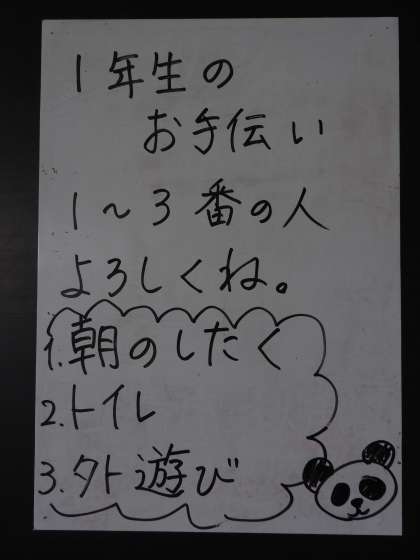 1年生の
お手伝い
1～3番の人
よろしくね。
1.朝のしたく
2.トイレ
3.外遊び